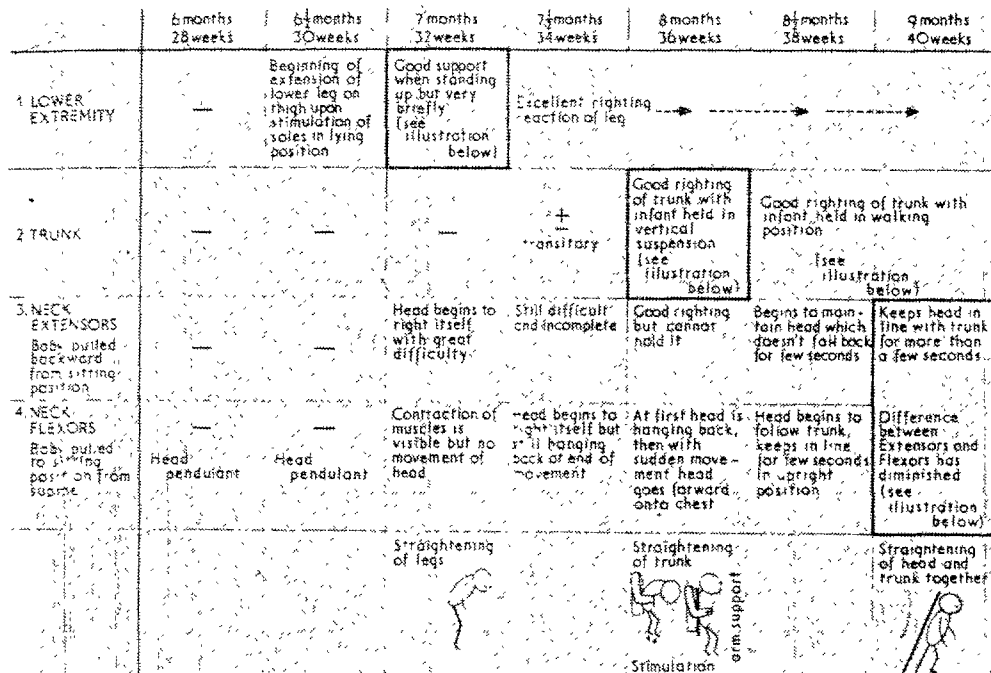 6 months
28 weeks
6½ months
30 weeks
7 months
32 weeks
7½ months
34 weeks
8 months
36 weeks
8½ months
38 weeks
9 months
40 weeks
1 LOWER
EXTREMITY
—
Beginning of
extension of
lower leg on
thigh upon
stimulation of
soles in lying
position
Good support
when standing
up but very
briefly
(see
illustration
below)
Excellent righting
reaction of leg
2 TRUNK
—
—
—
+
—
transitory
Good righting
of trunk with
infant held in
vertical
suspension
(see
illustration
below)
Good righting of trunk with
infant held in walking
position
(see
illustration
below)
3. NECK
EXTENSORS
Baby pulled
backward
from sitting
position
—
—
Head begins to
right itself
with great
difficulty
Still difficult
and incomplete
Good righting
but cannot
hold it
Begins to main-
tain head which
doesn't fall back
for few seconds
Keeps head in
line with trunk
for more than
a few seconds
4. NECK
FLEXORS
Baby pulled
to sitting
position from
supine
—
Head
pendulant
—
Head
pendulant
Contraction of
muscles is
visible but no
movement of
head
Head begins to
right itself but
still hanging
back at end of
movement
At first head is
hanging back,
then with
sudden move-
ment head
goes forward
onto chest
Head begins to
follow trunk,
keeps in line
for few seconds
in upright
position
Difference
between
Extensors and
Flexors has
diminished
(see
illustration
below)
Straightening
of legs
Straightening
of trunk
arm support
Stimulation
Straightening
of head and
trunk together